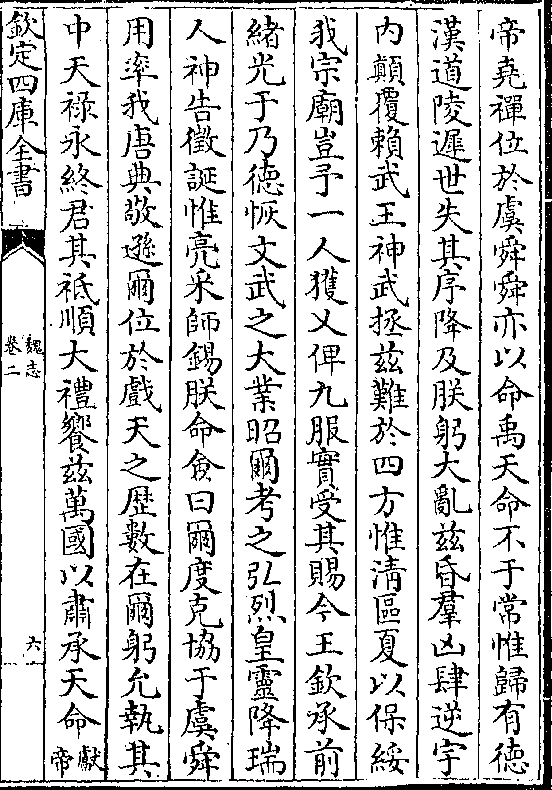 帝堯禪位於虞舜舜亦以命禹天命不于常惟歸有德
漢道陵遲世失其序降及朕躬大亂兹昏羣凶肆逆宇
内顛覆賴武王神武拯兹難於四方惟清區夏以保綏
我宗廟豈予一人獲乂俾九服實受其賜今王欽承前
緒光于乃德恢文武之大業昭爾考之弘烈皇靈降瑞
人神告徵誕惟亮采師錫朕命僉曰爾度克協于虞舜
用率我唐典敬遜爾位於戲天之歷數在爾躬允執其
中天禄永終君其祗順大禮饗兹萬國以肅承天命獻帝
欽定四庫全書
魏志
卷二
六